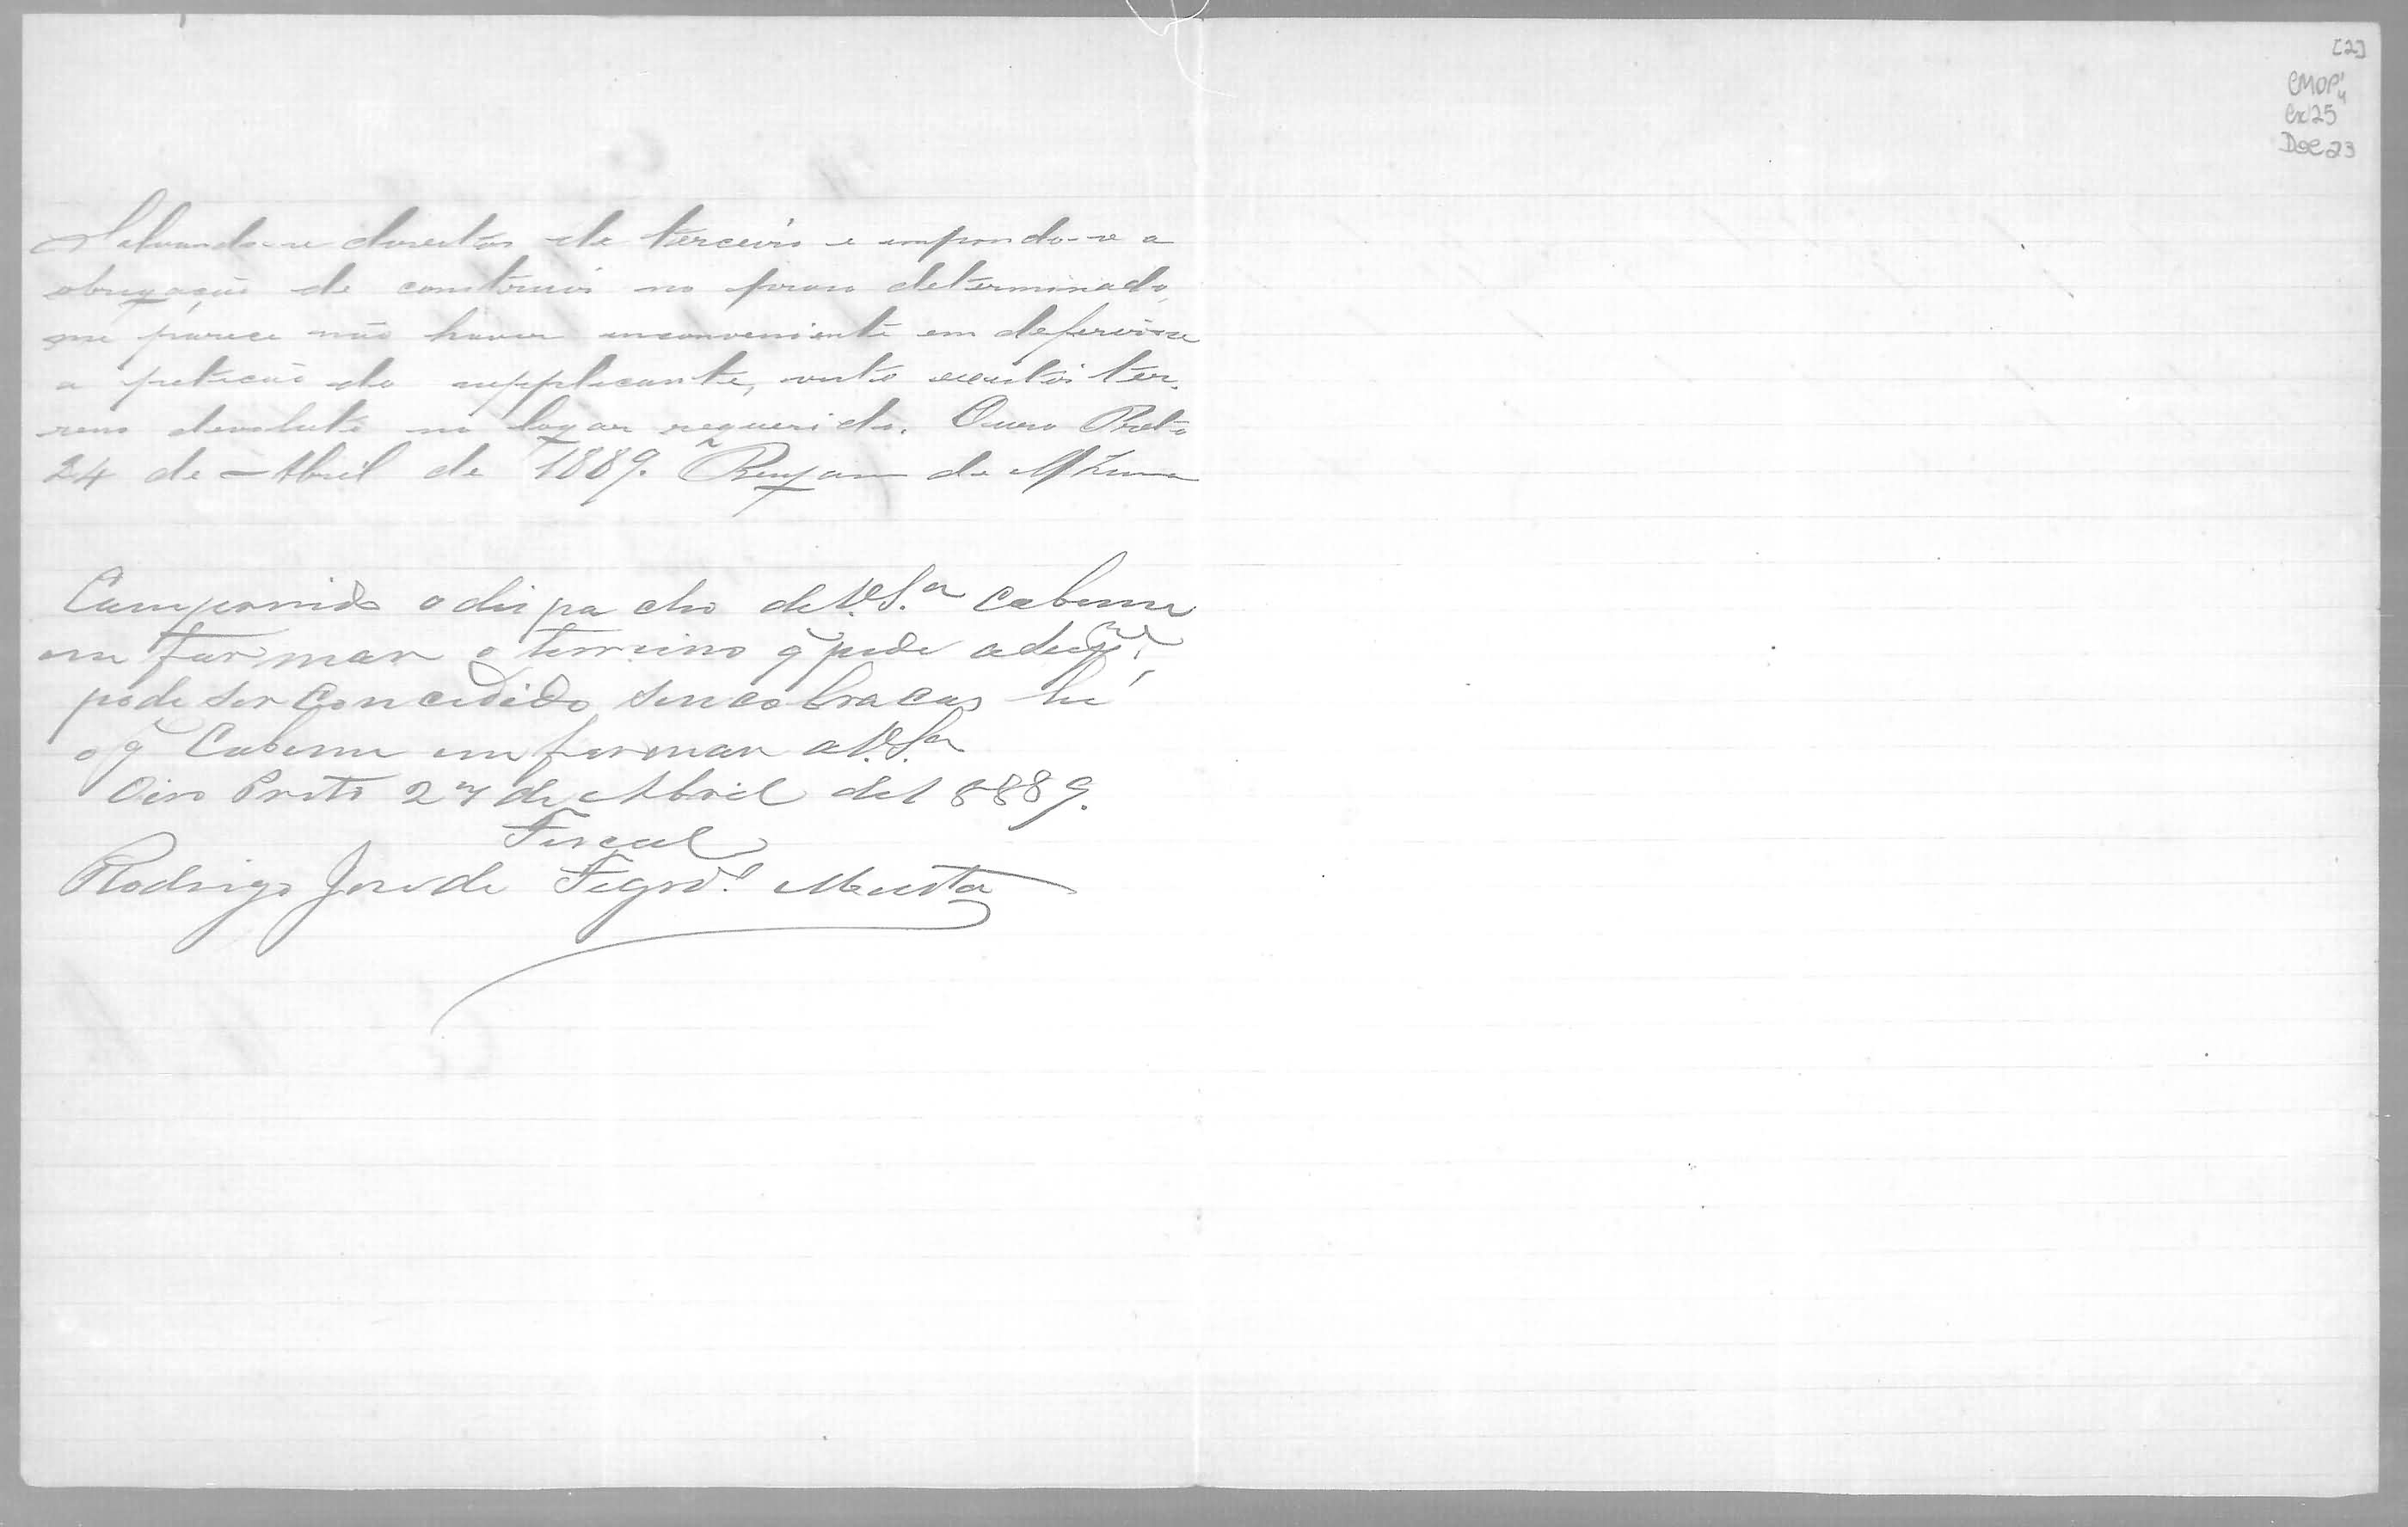 [2]
CMOP
Cx 25
Doc 23
Salvando-se direitos de terceiro e impondo-se a
obrigação de construir no praso determinado,
me parece não haver inconveniente em deferir-se
a petição do supplicante, visto existir ter-
reno devoluto no logar requerido. Ouro Preto
24 de Abril de 1889. de
Comprindo o dispacho de V. S.ª Cabeme
em formar o terreino q̃ pede
pode ser Concedido sinco bracas hé
o q̃ Cabeme em formar a V. S.ª
Oiro Preto 27 de Abril de 1889.
Fiscal
Rodrigo José de Figrd.º